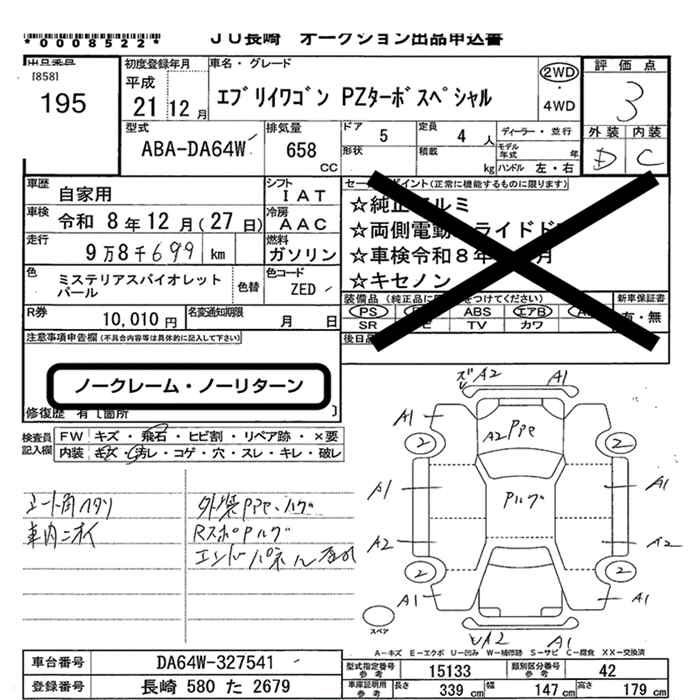 *0008522*
JU長崎 オークション出品申込書
出品番号
[858]
195
初度登録年月
平成
21 12 月
車名・グレード
エブリイワゴン PZターボスペシャル
2WD
・
4WD
評価点
3
外装 内装
D C
型式
ABA-DA64W
排気量
658
CC
ドア 5
形状
定員 4 人
積載 kg
ディーラー・並行
モデル年式 年
ハンドル 左・右
車歴 自家用
シフト IAT
車検 令和 8年 12月(27日)
冷房 AAC
走行 9万8千699 km
燃料 ガソリン
色 ミステリアスバイオレットパール
色替
色コード ZED
R券 10,010円
名変通知期限 月 日
セールスポイント(正常に機能するものに限ります)
☆純正アルミ
☆両側電動スライドド
☆車検令和8年 月
☆キセノン
装備品(純正品に をつけてください)
PS ABS エアB
SR TV カワ
新車保証書
有・無
後日品
注意事項申告欄(不具合内容等は具体的に記入して下さい)
ノークレーム・ノーリターン
修復歴 有[箇所 ]
検査員記入欄
FW キズ・飛石・ヒビ割・リペア跡・×要
内装 キズ・汚レ・コゲ・穴・スレ・キレ・破レ
シート角ヘタリ
車内ニオイ
外装PPe、ハゲ
RスポPハゲ
エンドパネル
A2 A1
A1 A1
2 2
A2 PPe
Pハゲ
A1 A1
A2 A2
2 2
A1 A1
UA2 A1
スペア
A-キズ E-エクボ U-凹み W-補修跡 S-サビ C-腐食 XX-交換済
車台番号 DA64W-327541
登録番号 長崎 580 た 2679
型式指定番号 参考 15133
類別区分番号 参考 42
車庫証明用 参考 長さ 339 cm 幅 147 cm 高さ 179 cm